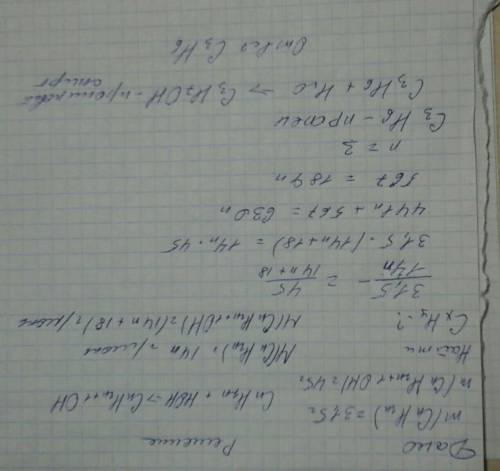 Дано Решение
m(CnH2n) = 31,5г
CnH2n + HOH → CnH2n+1OH
m(CnH2n+1OH) = 45г
Найти M(CnH2n) = 14n г/моль
CxHy - ? M(CnH2n+1OH) = (14n + 18) г/моль
31,5/14n = 45/14n + 18
31,5 · (14n + 18) = 14n · 45
441n + 567 = 630n
567 = 189n
n = 3
C3H6 - пропен
C3H6 + H2O → C3H7OH - пропиловый спирт
Ответ C3H6